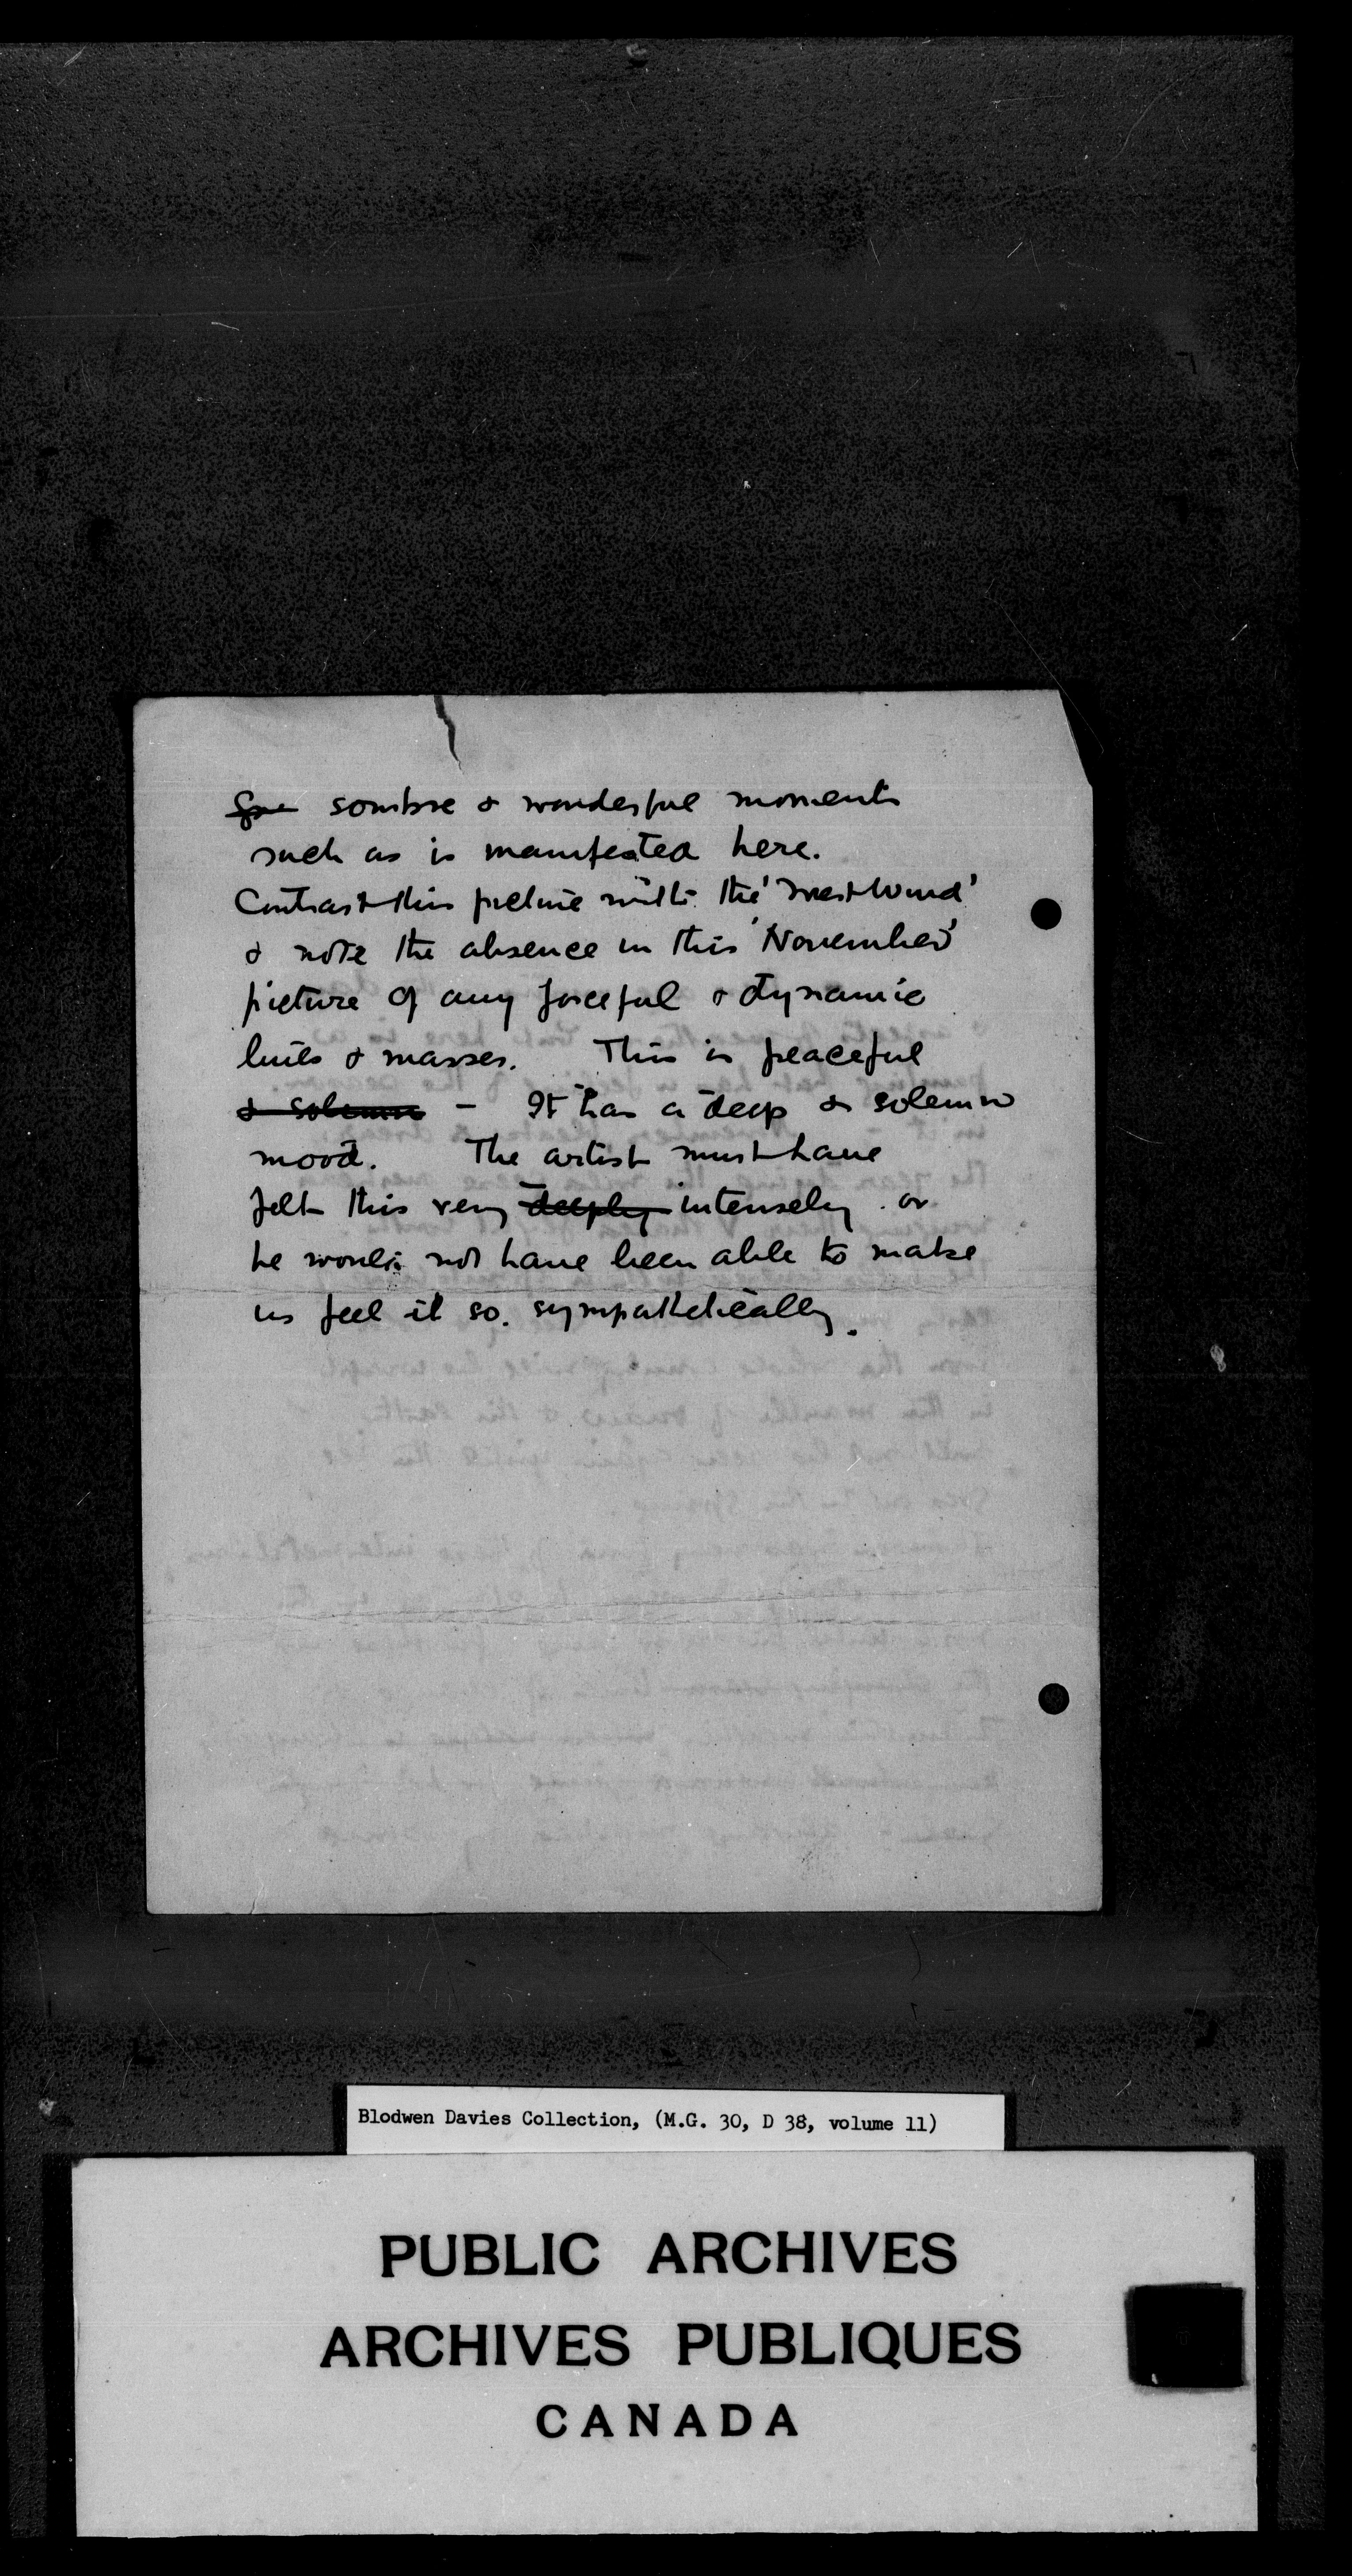 sombre & wonderful moments
such as is manifested here.
Contrast this picture with the 'West Wind'
& note the absence in this 'November'
picture of any forceful & dynamic
lines & masses. This is peaceful
& solemn - It has a deep & solemn
mood. The artist must have
felt this very deeply intensely or
he would not have been able to make
us feel it so sympathetically.
Blodwen Davies Collection, (M.G. 30, D 38, volume 11)
PUBLIC ARCHIVES
ARCHIVES PUBLIQUES
CANADA